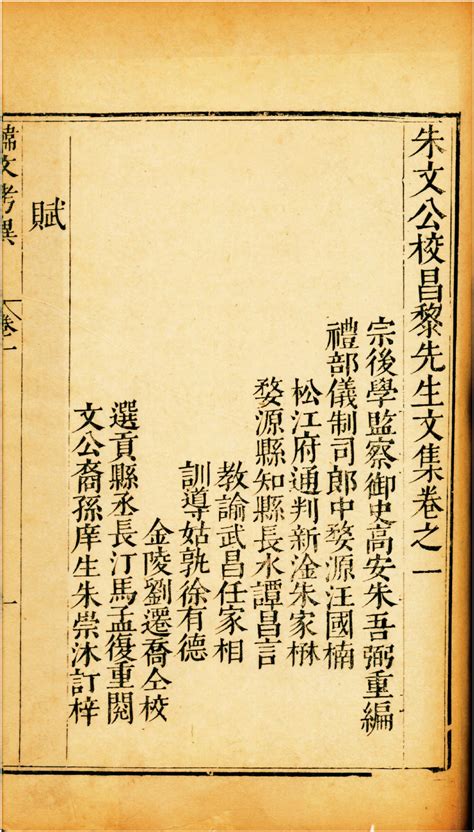 朱文公校昌黎先生文集卷之一
宗後學監察御史高安朱吾弼重編
禮部儀制司郎中婺源汪國楠
松江府通判新淦朱家楙
婺源縣知縣長水譚昌言
教諭武昌任家相
訓導姑孰徐有德
金陵劉遷喬仝校
選貢縣丞長汀馬孟復重閱
文公裔孫庠生朱崇沐訂梓
賦
韓文考異
卷一
一